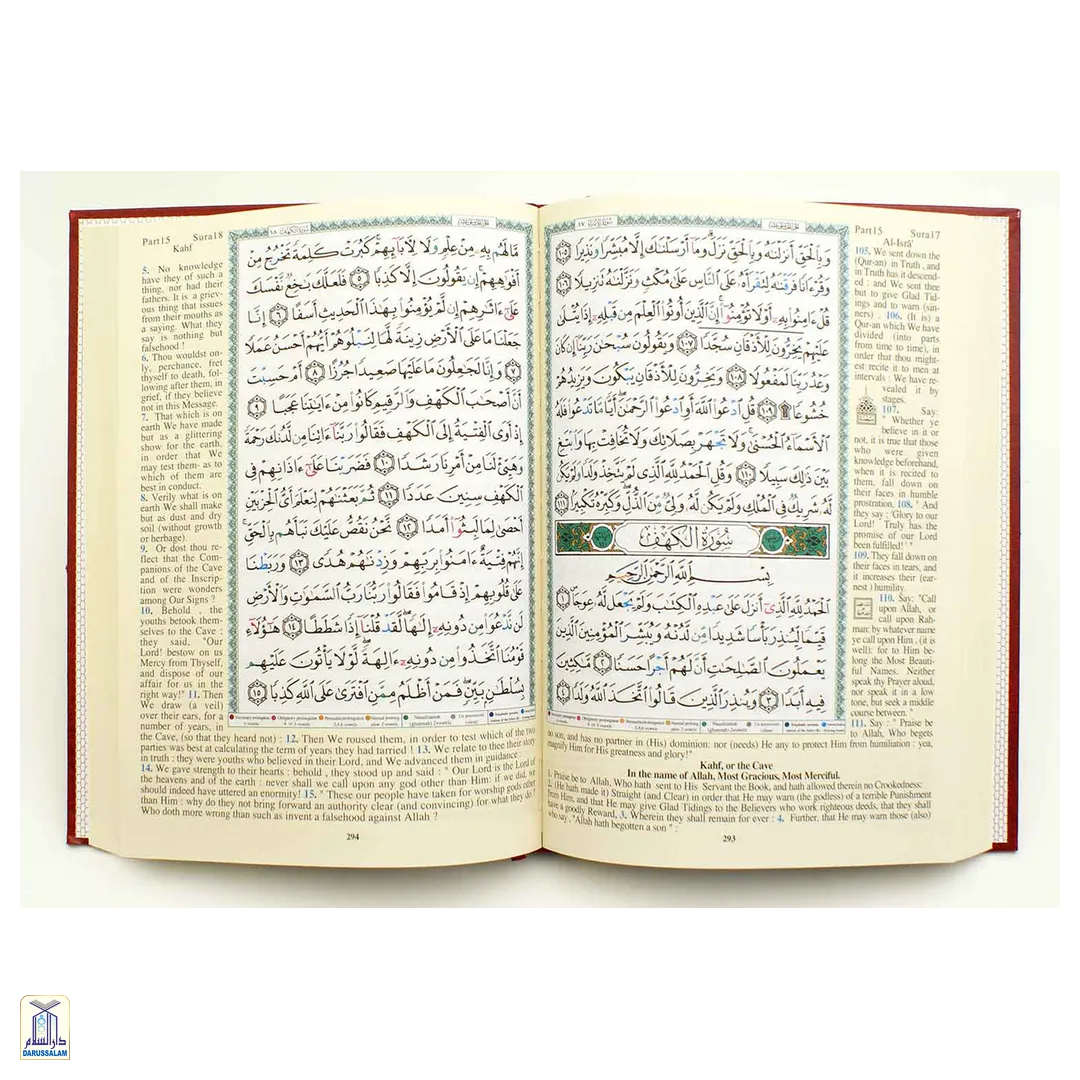 Part15 Sura17
Al-Isrâ'
وَبِٱلْحَقِّ أَنزَلْنَٰهُ وَبِٱلْحَقِّ نَزَلَ ۗ وَمَآ أَرْسَلْنَٰكَ إِلَّا مُبَشِّرًا وَنَذِيرًا ١٠٥
وَقُرْءَانًا فَرَقْنَٰهُ لِتَقْرَأَهُۥ عَلَى ٱلنَّاسِ عَلَىٰ مُكْثٍ وَنَزَّلْنَٰهُ تَنزِيلًا ١٠٦
قُلْ ءَامِنُوا۟ بِهِۦٓ أَوْ لَا تُؤْمِنُوٓا۟ ۚ إِنَّ ٱلَّذِينَ أُوتُوا۟ ٱلْعِلْمَ مِن قَبْلِهِۦٓ إِذَا يُتْلَىٰ
عَلَيْهِمْ يَخِرُّونَ لِلْأَذْقَانِ سُجَّدًا ١٠٧ وَيَقُولُونَ سُبْحَٰنَ رَبِّنَآ إِن كَانَ
وَعْدُ رَبِّنَا لَمَفْعُولًا ١٠٨ وَيَخِرُّونَ لِلْأَذْقَانِ يَبْكُونَ وَيَزِيدُهُمْ
خُشُوعًا ۩ ١٠٩ قُلِ ٱدْعُوا۟ ٱللَّهَ أَوِ ٱدْعُوا۟ ٱلرَّحْمَٰنَ ۖ أَيًّا مَّا تَدْعُوا۟ فَلَهُ
ٱلْأَسْمَآءُ ٱلْحُسْنَىٰ ۚ وَلَا تَجْهَرْ بِصَلَاتِكَ وَلَا تُخَافِتْ بِهَا وَٱبْتَغِ
بَيْنَ ذَٰلِكَ سَبِيلًا ١١٠ وَقُلِ ٱلْحَمْدُ لِلَّهِ ٱلَّذِى لَمْ يَتَّخِذْ وَلَدًا وَلَمْ يَكُن
لَّهُۥ شَرِيكٌ فِى ٱلْمُلْكِ وَلَمْ يَكُن لَّهُۥ وَلِىٌّ مِّنَ ٱلذُّلِّ ۖ وَكَبِّرْهُ تَكْبِيرًۢا ١١١
سُورَةُ الكَهْفِ
بِسْمِ ٱللَّهِ ٱلرَّحْمَٰنِ ٱلرَّحِيمِ
ٱلْحَمْدُ لِلَّهِ ٱلَّذِىٓ أَنزَلَ عَلَىٰ عَبْدِهِ ٱلْكِتَٰبَ وَلَمْ يَجْعَل لَّهُۥ عِوَجَا ١
قَيِّمًا لِّيُنذِرَ بَأْسًا شَدِيدًا مِّن لَّدُنْهُ وَيُبَشِّرَ ٱلْمُؤْمِنِينَ ٱلَّذِينَ
يَعْمَلُونَ ٱلصَّٰلِحَٰتِ أَنَّ لَهُمْ أَجْرًا حَسَنًا ٢ مَّٰكِثِينَ
فِيهِ أَبَدًا ٣ وَيُنذِرَ ٱلَّذِينَ قَالُوا۟ ٱتَّخَذَ ٱللَّهُ وَلَدًا ٤
105. We sent down the
(Qur-an) in Truth , and
in Truth has it descend-
ed : and We sent thee
but to give Glad Tid-
ings and to warn (sin-
ners) . 106. (It is) a
Qur-an which We have
divided (into parts
from time to time), in
order that thou might-
est recite it to men at
intervals : We have re-
vealed it by
stages.
107. Say:
" Whether ye
believe in it or
not, it is true that those
who were given
knowledge beforehand,
when it is recited to
them, fall down on
their faces in humble
prostration, 108. " And
they say : 'Glory to our
Lord! Truly has the
promise of our Lord
been fulfilled!' "
109. They fall down on
their faces in tears, and
it increases their (ear-
nest ) humility.
110. Say: "Call
upon Allah, or
call upon Rah-
man: by whatever name
ye call upon Him , (it is
well): for to Him be-
long the Most Beauti-
ful Names. Neither
speak thy Prayer aloud,
nor speak it in a low
tone, but seek a middle
course between. "
111. Say : " Praise be
to Allah, Who begets
no son, and has no partner in (His) dominion: nor (needs) He any to protect Him from humiliation : yea,
magnify Him for His greatness and glory!"
Kahf, or the Cave
In the name of Allah, Most Gracious, Most Merciful.
1. Praise be to Allah, Who hath sent to His Servant the Book, and hath allowed therein no Crookedness:
2. (He hath made it) Straight (and Clear) in order that He may warn (the godless) of a terrible Punishment
from Him, and that He may give Glad Tidings to the Believers who work righteous deeds, that they shall
have a goodly Reward, 3. Wherein they shall remain for ever : 4. Further, that He may warn those (also)
who say, "Allah hath begotten a son " :
293
Part15 Sura18
Kahf
مَّا لَهُم بِهِۦ مِنْ عِلْمٍ وَلَا لِءَابَآئِهِمْ ۚ كَبُرَتْ كَلِمَةً تَخْرُجُ مِنْ
أَفْوَٰهِهِمْ ۚ إِن يَقُولُونَ إِلَّا كَذِبًا ٥ فَلَعَلَّكَ بَٰخِعٌ نَّفْسَكَ
عَلَىٰٓ ءَاثَٰرِهِمْ إِن لَّمْ يُؤْمِنُوا۟ بِهَٰذَا ٱلْحَدِيثِ أَسَفًا ٦ إِنَّا
جَعَلْنَا مَا عَلَى ٱلْأَرْضِ زِينَةً لَّهَا لِنَبْلُوَهُمْ أَيُّهُمْ أَحْسَنُ عَمَلًا
٧ وَإِنَّا لَجَٰعِلُونَ مَا عَلَيْهَا صَعِيدًا جُرُزًا ٨ أَمْ حَسِبْتَ
أَنَّ أَصْحَٰبَ ٱلْكَهْفِ وَٱلرَّقِيمِ كَانُوا۟ مِنْ ءَايَٰتِنَا عَجَبًا ٩
إِذْ أَوَى ٱلْفِتْيَةُ إِلَى ٱلْكَهْفِ فَقَالُوا۟ رَبَّنَآ ءَاتِنَا مِن لَّدُنكَ رَحْمَةً
وَهَيِّئْ لَنَا مِنْ أَمْرِنَا رَشَدًا ١٠ فَضَرَبْنَا عَلَىٰٓ ءَاذَانِهِمْ فِى
ٱلْكَهْفِ سِنِينَ عَدَدًا ١١ ثُمَّ بَعَثْنَٰهُمْ لِنَعْلَمَ أَىُّ ٱلْحِزْبَيْنِ
أَحْصَىٰ لِمَا لَبِثُوٓا۟ أَمَدًا ١٢ نَّحْنُ نَقُصُّ عَلَيْكَ نَبَأَهُم بِٱلْحَقِّ ۚ
إِنَّهُمْ فِتْيَةٌ ءَامَنُوا۟ بِرَبِّهِمْ وَزِدْنَٰهُمْ هُدًى ١٣ وَرَبَطْنَا
عَلَىٰ قُلُوبِهِمْ إِذْ قَامُوا۟ فَقَالُوا۟ رَبُّنَا رَبُّ ٱلسَّمَٰوَٰتِ وَٱلْأَرْضِ
لَن نَّدْعُوَا۟ مِن دُونِهِۦٓ إِلَٰهًا ۖ لَّقَدْ قُلْنَآ إِذًا شَطَطًا ١٤ هَٰٓؤُلَآءِ
قَوْمُنَا ٱتَّخَذُوا۟ مِن دُونِهِۦٓ ءَالِهَةً ۖ لَّوْلَا يَأْتُونَ عَلَيْهِم
بِسُلْطَٰنٍۭ بَيِّنٍ ۖ فَمَنْ أَظْلَمُ مِمَّنِ ٱفْتَرَىٰ عَلَى ٱللَّهِ كَذِبًا ١٥
5. No knowledge
have they of such a
thing, nor had their
fathers. It is a griev-
ous thing that issues
from their mouths as
a saying. What they
say is nothing but
falsehood !
6. Thou wouldst on-
ly, perchance, fret
thyself to death, fol-
lowing after them, in
grief, if they believe
not in this Message.
7. That which is on
earth We have made
but as a glittering
show for the earth,
in order that We
may test them- as to
which of them are
best in conduct.
8. Verily what is on
earth We shall make
but as dust and dry
soil (without growth
or herbage).
9. Or dost thou re-
flect that the Com-
panions of the Cave
and of the Inscrip-
tion were wonders
among Our Signs ?
10. Behold , the
youths betook them-
selves to the Cave :
they said, "Our
Lord! bestow on us
Mercy from Thyself,
and dispose of our
affair for us in the
right way!" 11. Then
We draw (a veil)
over their ears, for a
number of years, in
the Cave, (so that they heard not) : 12. Then We roused them, in order to test which of the two
parties was best at calculating the term of years they had tarried ! 13. We relate to thee their story
in truth : they were youths who believed in their Lord, and We advanced them in guidance :
14. We gave strength to their hearts : behold , they stood up and said : " Our Lord is the Lord of
the heavens and of the earth : never shall we call upon any god other than Him: if we did, we
should indeed have uttered an enormity! 15. " These our people have taken for worship gods other
than Him : why do they not bring forward an authority clear (and convincing) for what they do ?
Who doth more wrong than such as invent a falsehood against Allah ?
294
دار السلام
DARUSSALAM